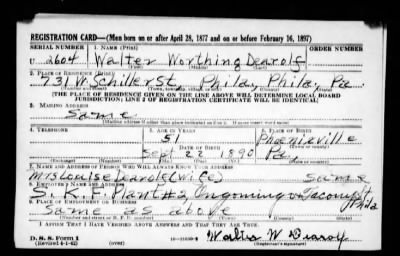 REGISTRATION CARD—(Men born on or after April 28, 1877 and on or before February 16, 1897)
SERIAL NUMBER 1. NAME (Print) ORDER NUMBER
U 2604 Walter Worthing Dearolf
(First) (Middle) (Last)
2. PLACE OF RESIDENCE (Print)
731 W. Schiller St. Phila, Phila, Pa
(Number and street) (Town, township, village, or city) (County) (State)
[THE PLACE OF RESIDENCE GIVEN ON THE LINE ABOVE WILL DETERMINE LOCAL BOARD
JURISDICTION; LINE 2 OF REGISTRATION CERTIFICATE WILL BE IDENTICAL]
3. MAILING ADDRESS
Same
[Mailing address if other than place indicated on line 2. If same insert word same]
4. TELEPHONE 5. AGE IN YEARS 6. PLACE OF BIRTH
51 Phoenixville
DATE OF BIRTH (Town or county)
Sept 22 1890 Pa.
(Exchange) (Number) (Mo.) (Day) (Yr.) (State or country)
7. NAME AND ADDRESS OF PERSON WHO WILL ALWAYS KNOW YOUR ADDRESS
Mrs Louise Dearolf (Wife) Same
8. EMPLOYER'S NAME AND ADDRESS
S. K. F. Plant #2, Tacony St Phila
9. PLACE OF EMPLOYMENT OR BUSINESS
Same as above
(Number and street or R. F. D. number) (Town) (County) (State)
I AFFIRM THAT I HAVE VERIFIED ABOVE ANSWERS AND THAT THEY ARE TRUE.
D. S. S. Form 1 Walter W Dearolf
(Revised 4-1-42) (over) (Registrant's signature)